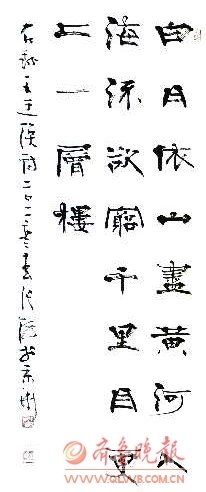 白日依山盡黃河入
海流欲窮千里目更
上一層樓
右錄王之渙詩二〇一一
齐鲁晚报
WWW.QLWB.COM.CN